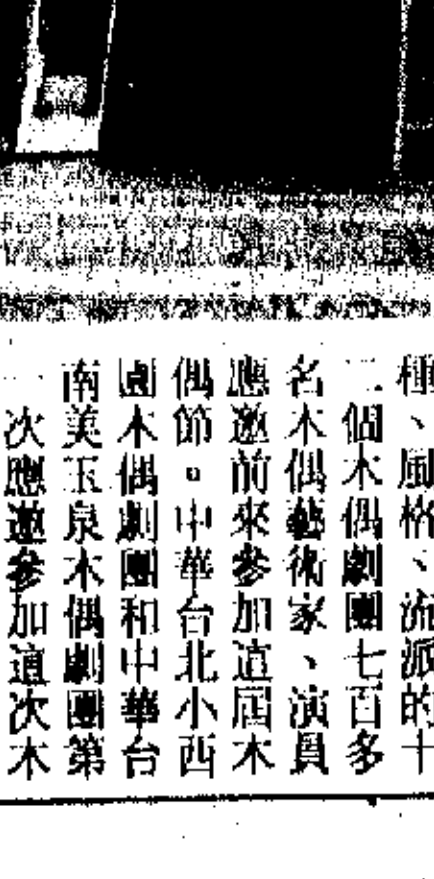 種、風格、流派的十
二個木偶劇團七百多
名木偶藝術家、演員
應邀前來參加這屆木
偶節。中華台北小西
園木偶劇團和中華台
南美玉泉木偶劇團第
一次應邀參加這次木